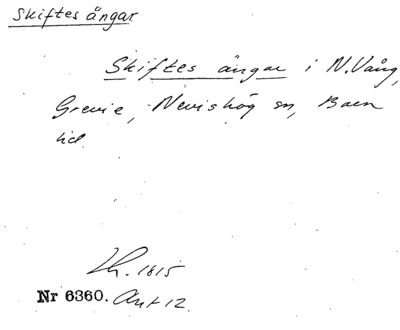 Skiftes ängar
Skiftes ängar i N. Vång,
Grevie, Nevishög sn, Bara
hd.
Lh. 1615
Nr 6360. Ant 12.